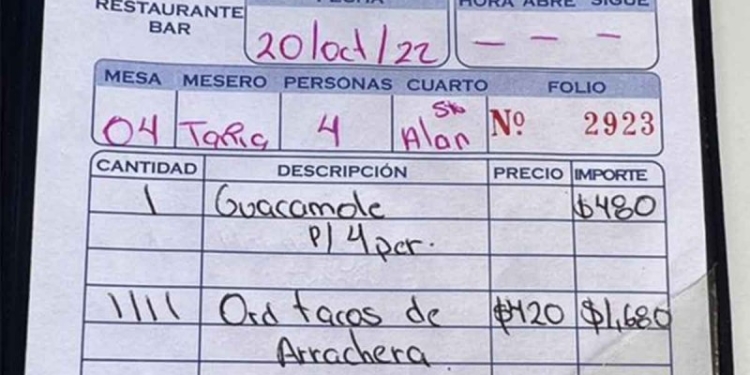 RESTAURANTE
BAR
FECHA
HORA ABRE SIGUE
20/oct/22
— — —
MESA MESERO PERSONAS CUARTO FOLIO
04 Tania 4 Sto Alan Nº 2923
CANTIDAD DESCRIPCIÓN PRECIO IMPORTE
1 Guacamole $480
P/ 4 per.
IIII Ord tacos de $420 $1,680
Arrachera